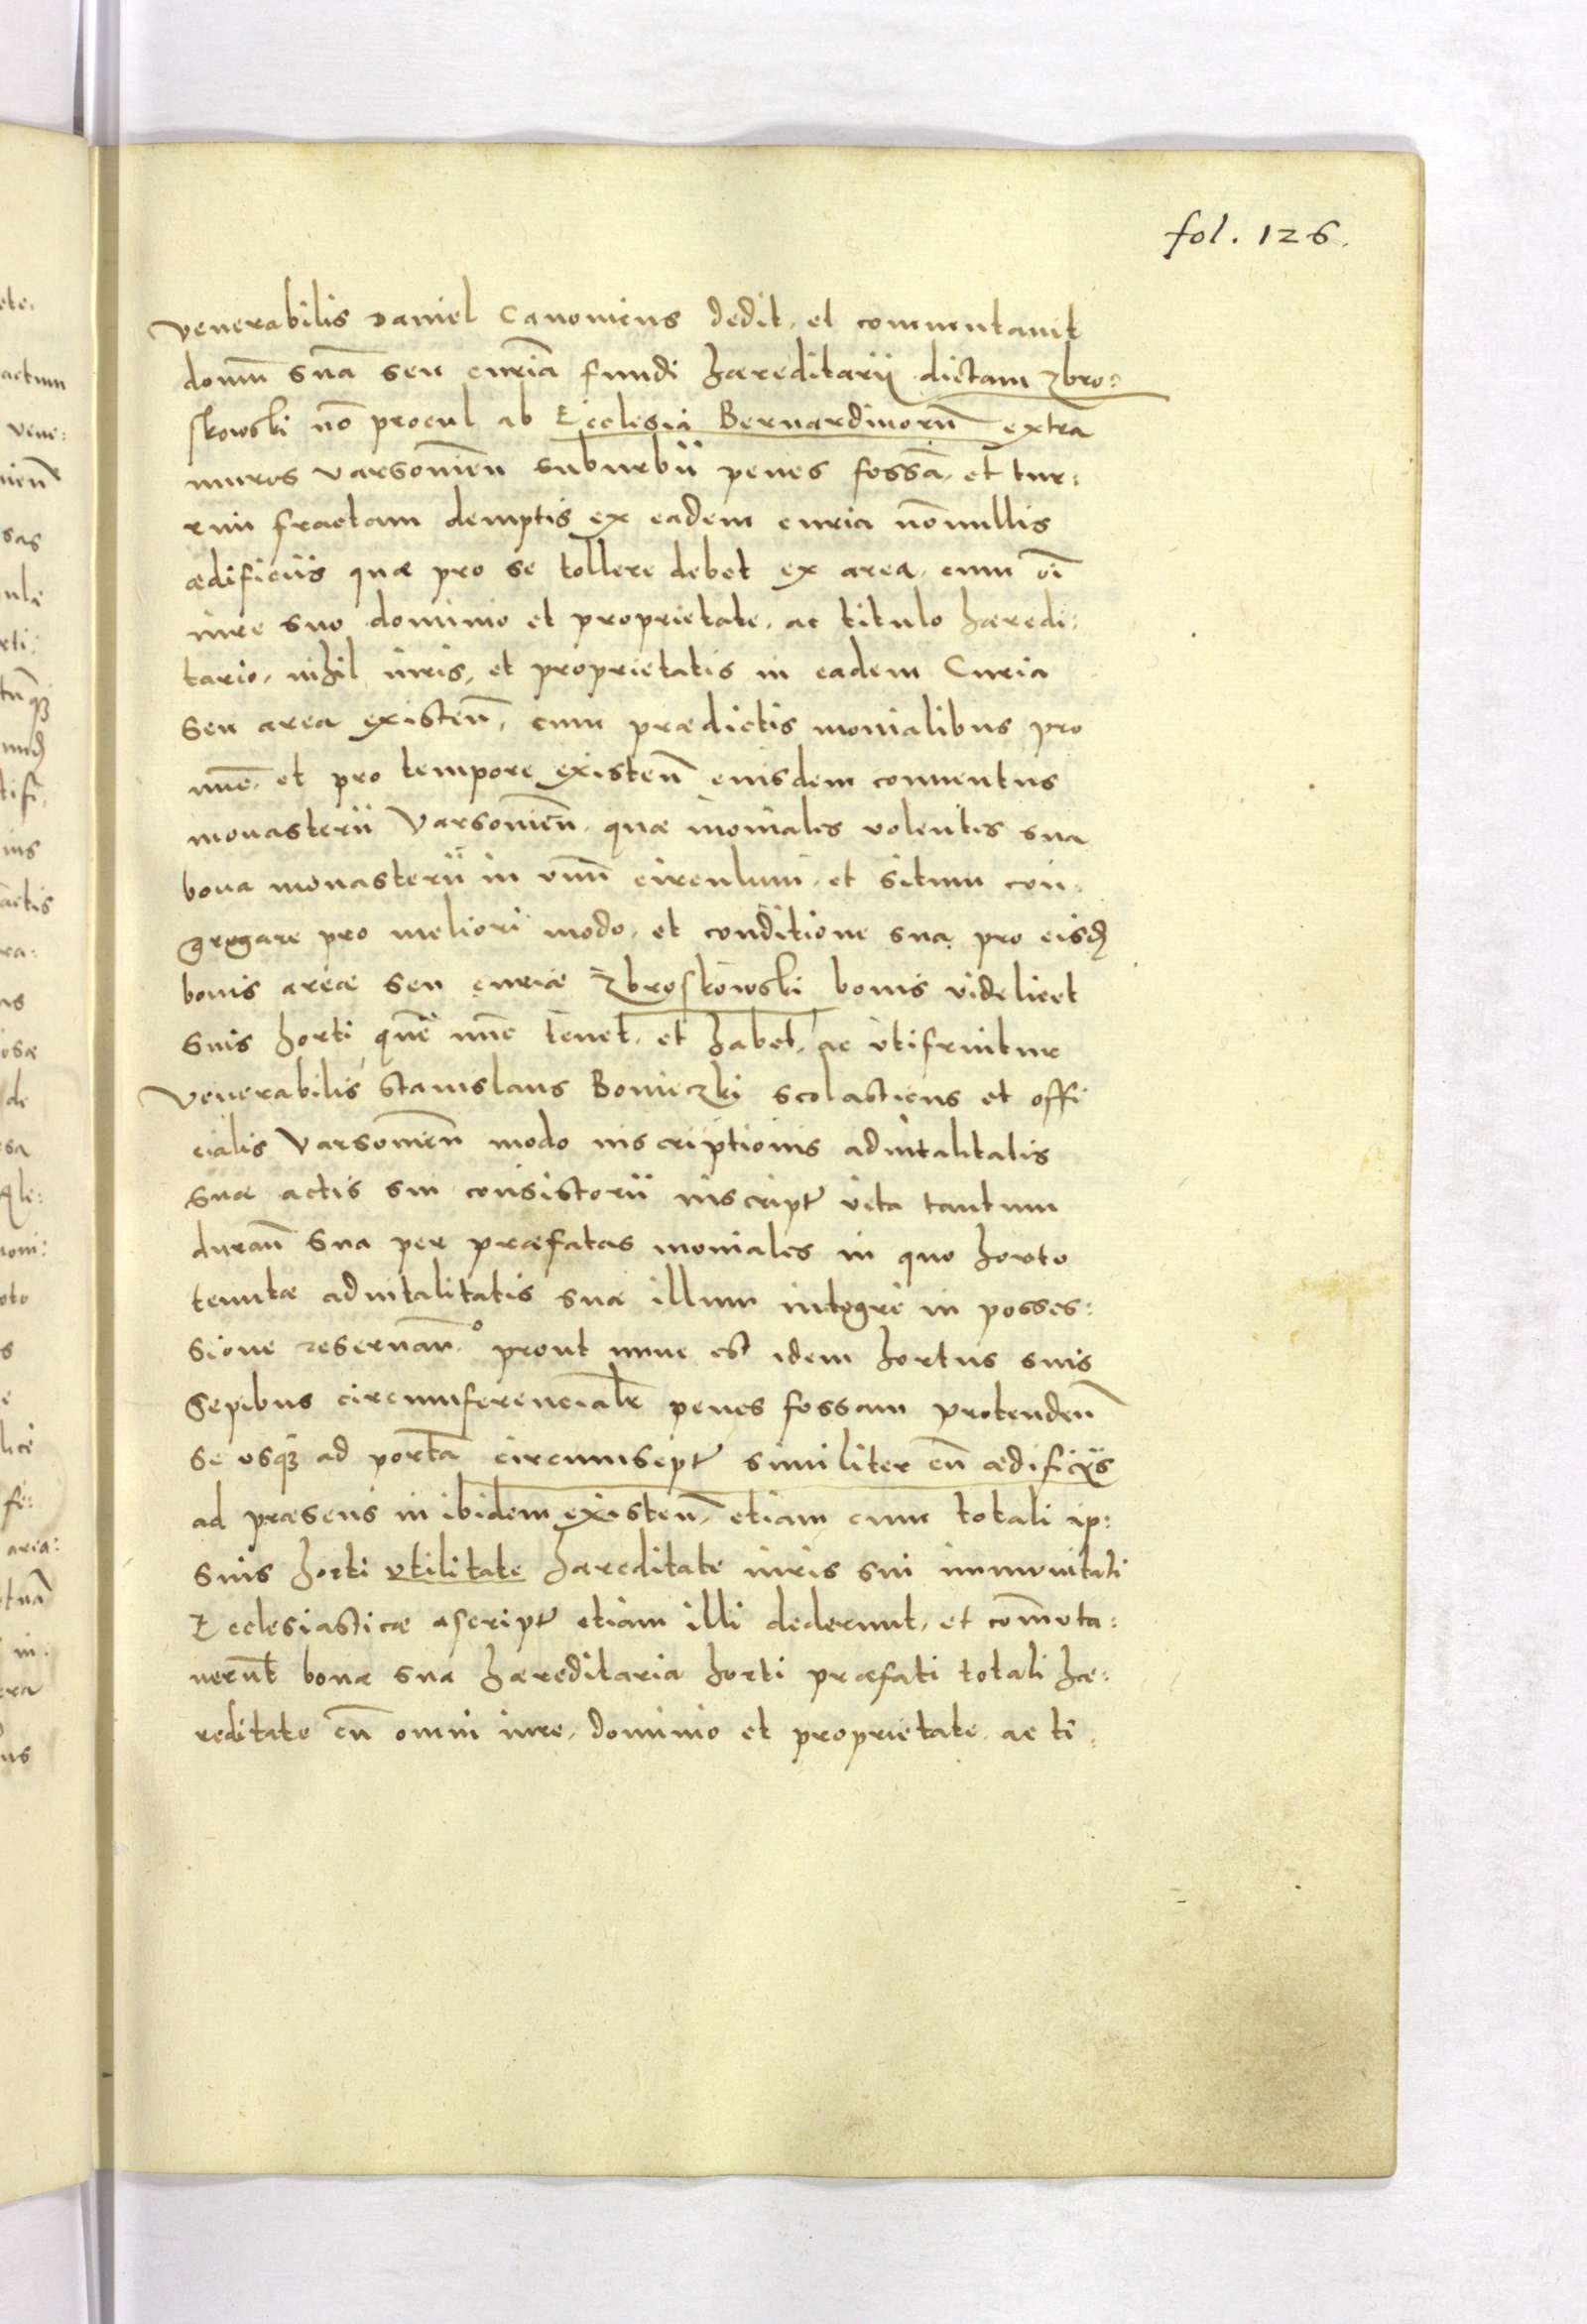 fol. 126.
venerabilis Daniel Canonicus dedit, et commutauit
domũ suã seu curiã fundi hæreditarij dictam Zbro:
skowski nõ procul ab Ecclesia Bernardinorũ extra
muros Varsouieñ suburbii penes fossã, et tur:
rim fractam demptis ex eadem curia nõnullis
ædificiis quæ pro se tollere debet ex area, cum õi
iure suo dominio et proprietate, ac titulo hæredi:
tario, nihil iuris, et proprietatis in eadem Curia
seu area existeñ, cum prædictis monialibus pro
nũc, et pro tempore existeñ eiusdem conuentus
monasterii Varsouieñ, quæ moniales volentes sua
bona monasterii in vnũ circulum, et situm con:
gregare pro meliori modo, et conditione sua pro eisd
bonis areæ seu curiæ Zbroskowski bonis videlicet
suis horti quẽ nũc tenet, et habet, ac vtifruitur
venerabilis Stanislaus Bonieczki scolasticus et offi
cialis Varsouieñ modo inscriptionis aduitalitatis
suæ actis sui consistorii inscript vita tantum
durañ sua per præfatas moniales in quo horto
tenutæ aduitalitatis suæ illum integre in posses:
sione reseruañ prout nunc est idem hortus suis
sepibus circumferencialr penes fossam protendeñ
se vsq ad portã circumsept similiter cũ ædificiis
ad præsens in ibidem existeñ, etiam cum totali ip:
suis horti vtilitate hæreditate iuris sui immunitati
Ecclesiasticæ ascript etiam illi dederunt, et com̃uta:
uerunt bona sua hæreditaria horti præfati totali hæ:
reditate cũ omni iure, dominio et proprietate, ac ti: